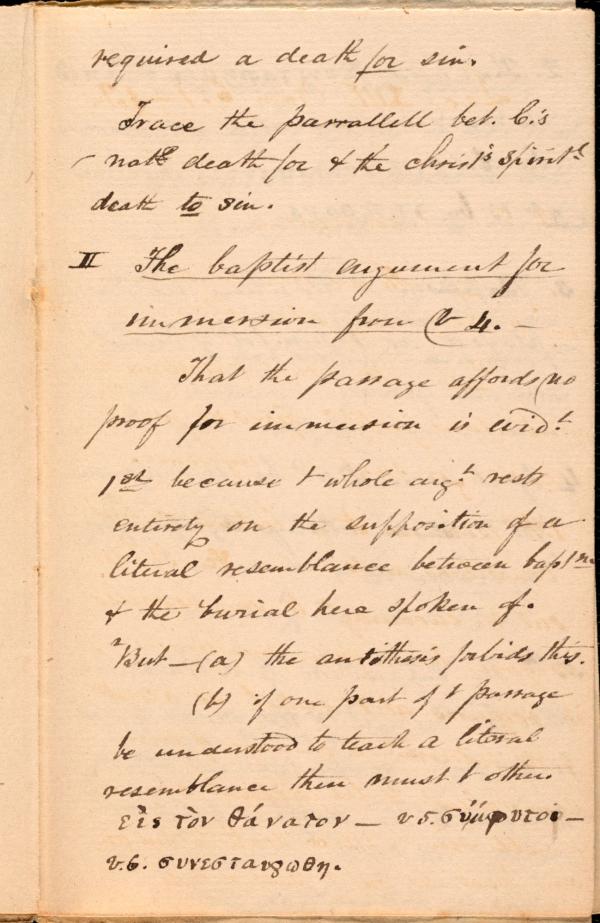 required a death for sin.
Trace the parrallell bet. C.'s
natl death for & the christ's spiritl
death to sin.
II The baptist argument for
immersion from (v 4. –
That the passage affords no
proof for immersion is evidt
1st because t whole argt rests
entirely on the supposition of a
literal resemblance between baptm
& the burial here spoken of.
But – (a) the antithesis forbids this.
(b) if one part of t passage
be understood to teach a literal
resemblance then must t other
εἰς τὸν θάνατον – v 5. σύμφυτοι –
v. 6. συνεσταυρωθη.